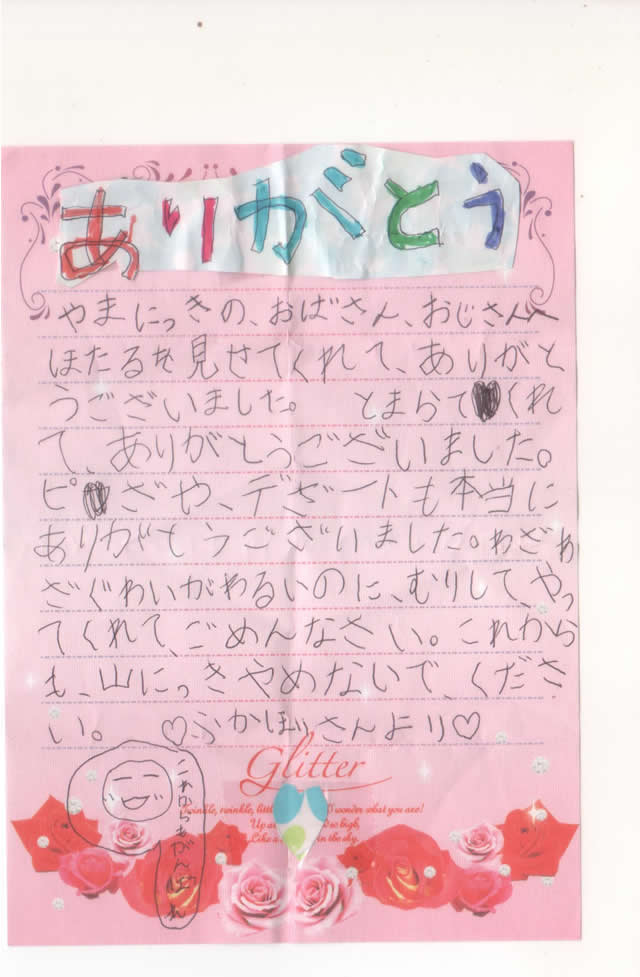 ありがとう
やまにっきの、おばさん、おじさんへ
ほたるを見せてくれて、ありがと
うございました。 とまらて くれ
て、ありがとうございました。
ピ ざや、デザートも本当に
ありがとうございました。わざわ
ざぐわいがわるいのに、むりして、やっ
てくれて、ごめんなさい。これから
も、山にっきやめないで、くださ
い。 ♡ふかぼりさんより♡
Glitter
Twinkle, twinkle, little wonder what you are!
Up so high,
Like a in the sky.
これからもがんばれ